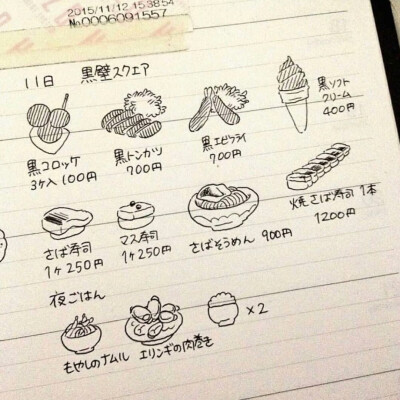 2015/11/12 15:38:54
No0006091557
11日 黒壁スクエア
黒コロッケ
3ケ入100円
黒トンカツ
700円
黒エビフライ
700円
黒ソフト
クリーム
400円
さば寿司
1ケ250円
マス寿司
1ケ250円
さばそうめん 900円
焼さば寿司 1本
1200円
夜ごはん
もやしのナムル
エリンギの肉巻き
×2